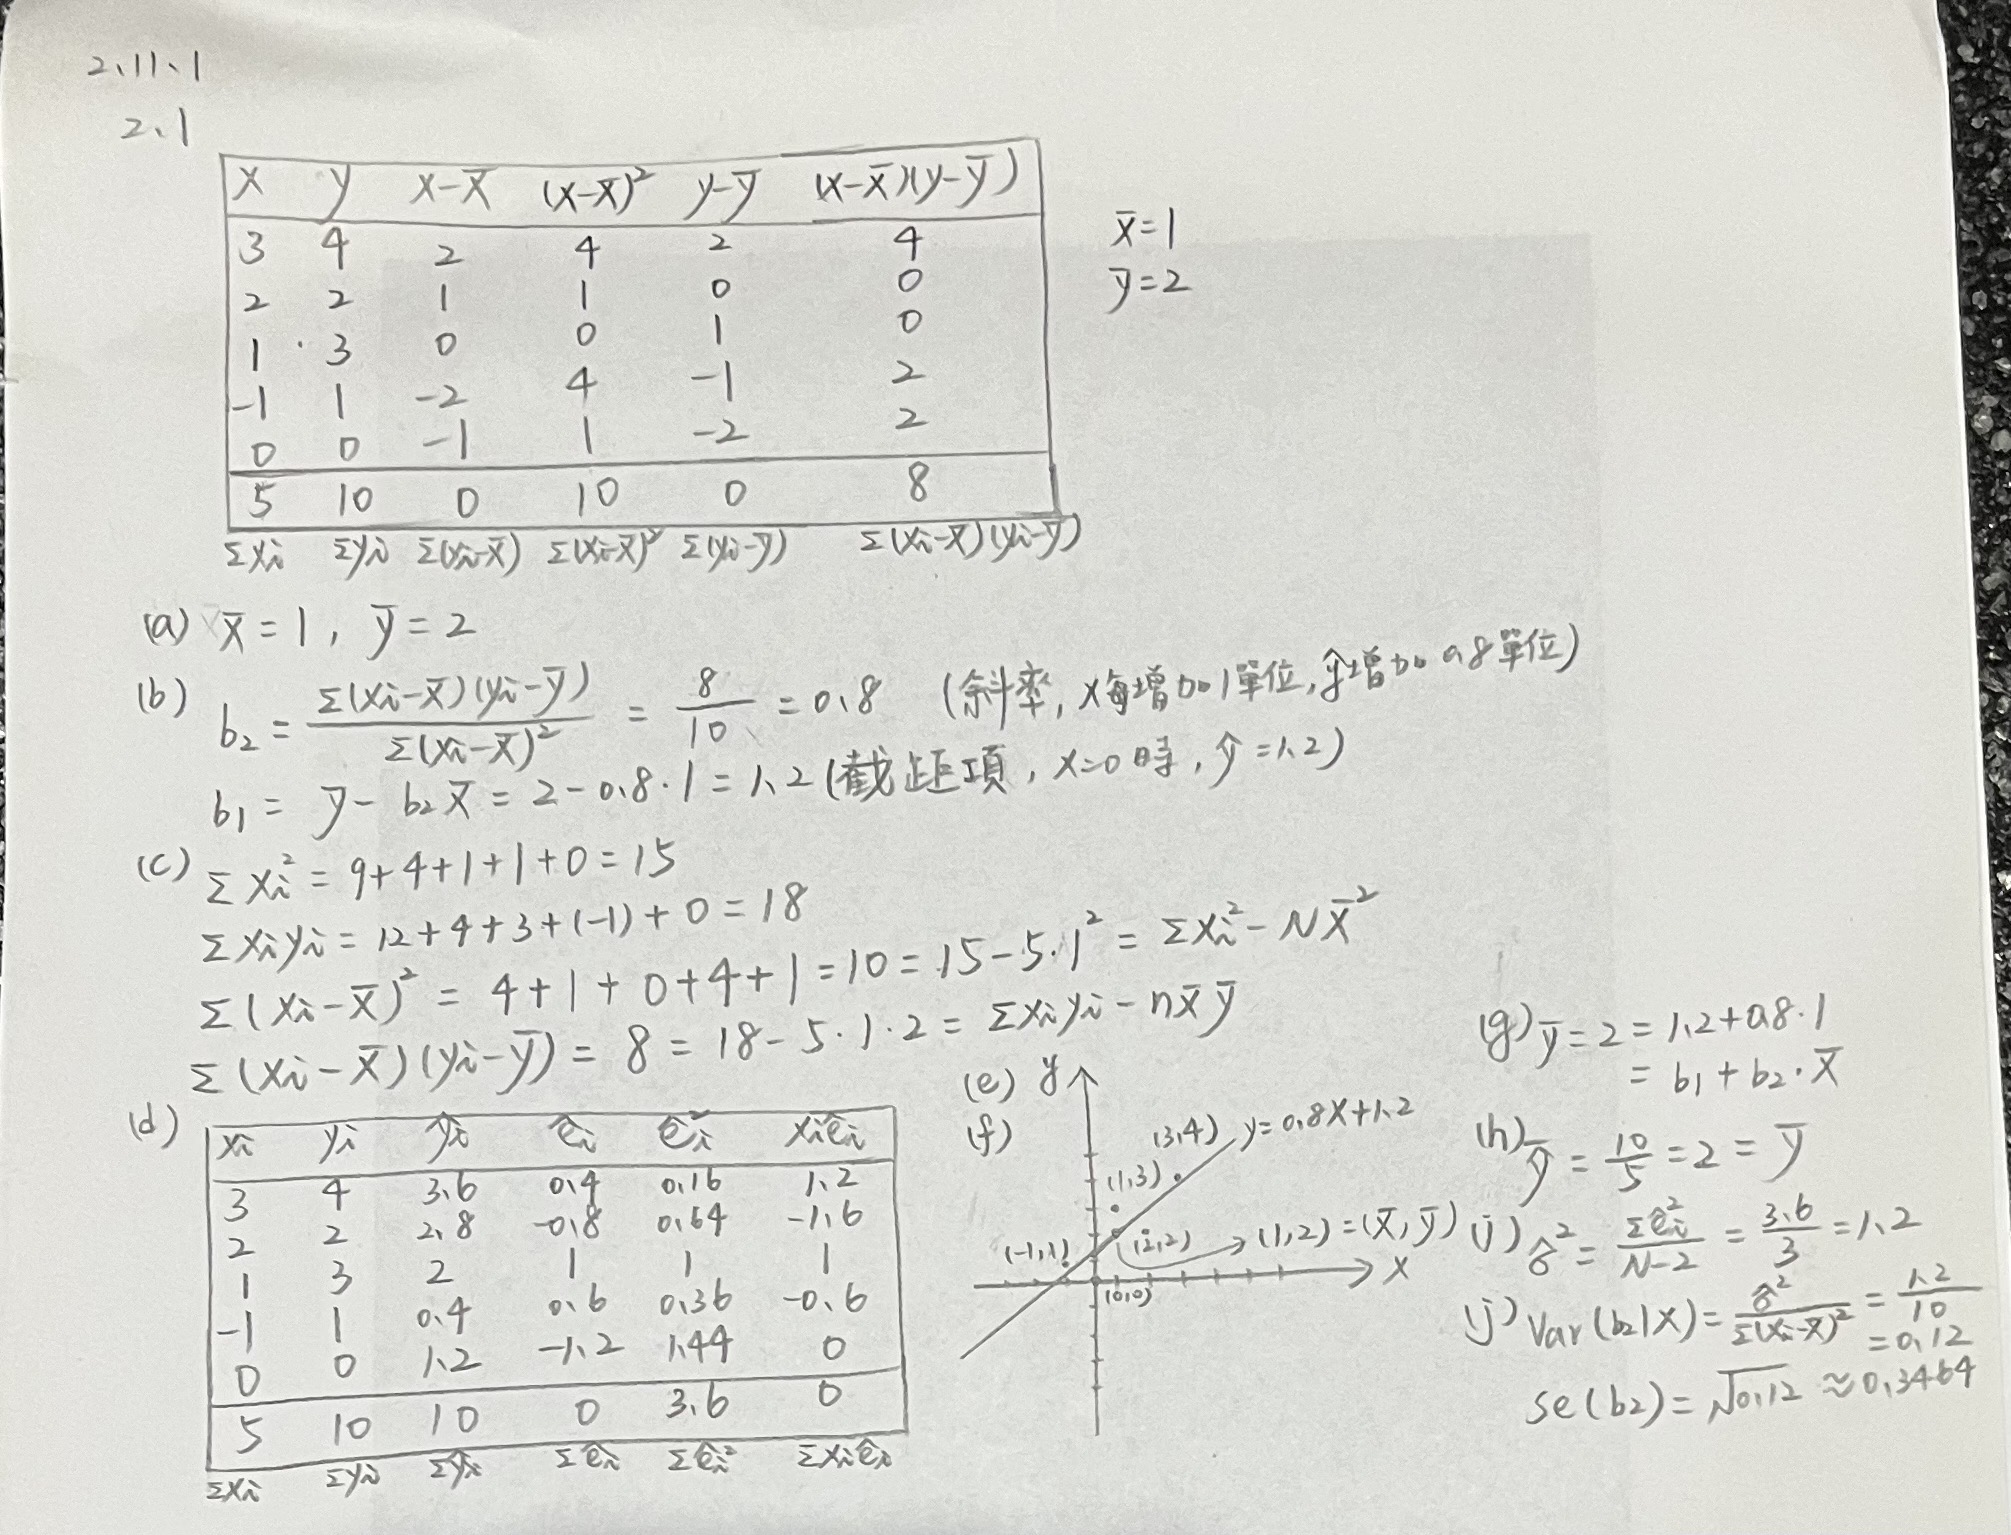 2.11.1
2.1
x y x-x̄ (x-x̄)² y-ȳ (x-x̄)(y-ȳ)
3 4 2 4 2 4
2 2 1 1 0 0
1 3 0 0 1 0
-1 1 -2 4 -1 2
0 0 -1 1 -2 2
5 10 0 10 0 8
Σxi Σyi Σ(xi-x̄) Σ(xi-x̄)² Σ(yi-ȳ) Σ(xi-x̄)(yi-ȳ)
x̄=1
ȳ=2
(a) x̄=1, ȳ=2
(b) b₂ = Σ(xi-x̄)(yi-ȳ) / Σ(xi-x̄)² = 8/10 = 0.8 (斜率, x每增加1單位, ŷ增加0.8單位)
b₁ = ȳ - b₂x̄ = 2-0.8·1 = 1.2 (截距項, x=0時, ŷ=1.2)
(c) Σxi² = 9+4+1+1+0 = 15
Σxiyi = 12+4+3+(-1)+0 = 18
Σ(xi-x̄)² = 4+1+0+4+1 = 10 = 15-5·1² = Σxi²-Nx̄²
Σ(xi-x̄)(yi-ȳ) = 8 = 18-5·1·2 = Σxiyi-nx̄ȳ
(d)
xi yi ŷi êi êi² xiêi
3 4 3.6 0.4 0.16 1.2
2 2 2.8 -0.8 0.64 -1.6
1 3 2 1 1 1
-1 1 0.4 0.6 0.36 -0.6
0 0 1.2 -1.2 1.44 0
5 10 10 0 3.6 0
Σxi Σyi Σŷi Σêi Σêi² Σxiêi
(e) y
(f)
(3,4) y=0.8x+1.2
(1,3)
(-1,1) (2,2) (1,2)=(x̄,ȳ)
x
(0,0)
(g) ȳ=2=1.2+0.8·1
=b₁+b₂·x̄
(h) ŷ̄ = 10/5 = 2 = ȳ
(i) σ̂² = Σêi²/(N-2) = 3.6/3 = 1.2
(j) Var(b₂|x) = σ̂²/Σ(xi-x̄)² = 1.2/10
=0.12
se(b₂) = √0.12 ≈ 0.3464